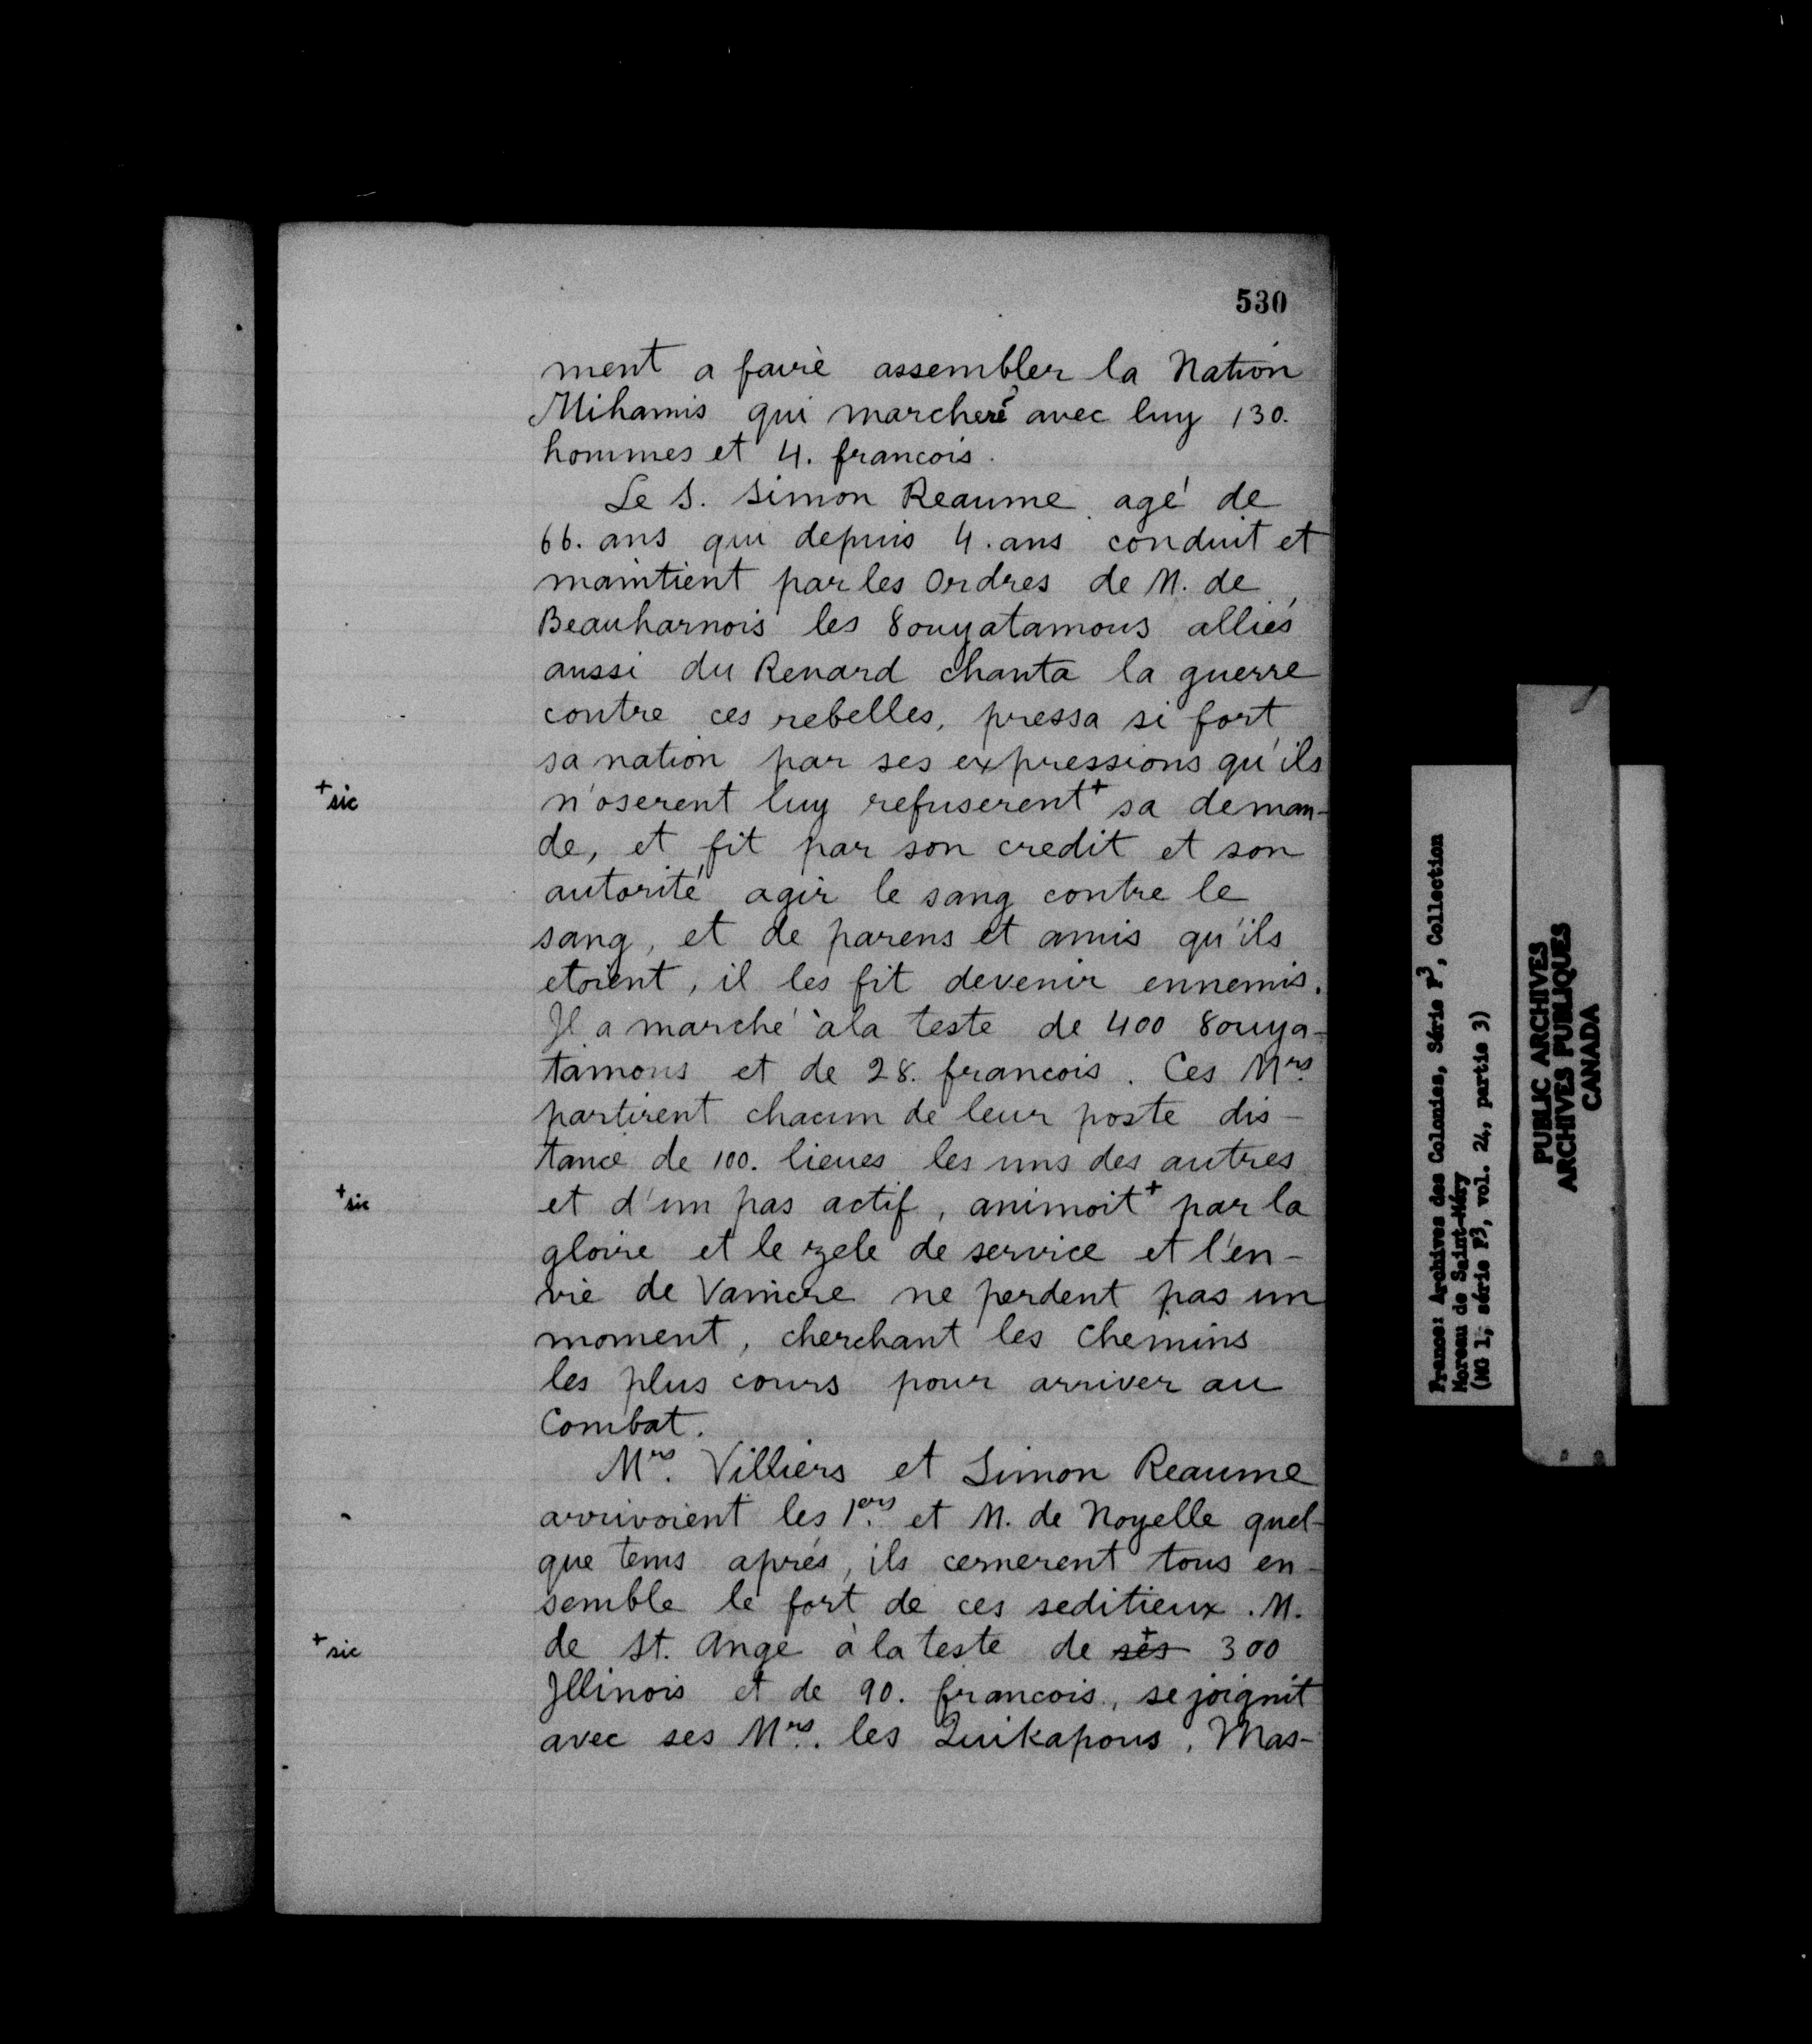 530
ment a faire assembler la Nation
Mihamis qui marcheré avec luy 130.
hommes et 4. francois.
Le S. Simon Reaume agé de
66. ans qui depuis 4. ans conduit et
maintient par les Ordres de M. de
Beauharnois les 8ouyatamous alliés
aussi du Renard chanta la guerre
contre ces rebelles, pressa si fort
sa nation par ses expressions qu'ils
+sic n'oserent luy refuserent+ sa deman-
de, et fit par son credit et son
autorité agir le sang contre le
sang, et de parens et amis qu'ils
etoient, il les fit devenir ennemis.
Il a marché à la teste de 400 8ouya-
tamous et de 28. francois. Ces Mrs.
partirent chacun de leur poste dis-
tance de 100. lieues les uns des autres
+sic et d'un pas actif, animoit+ par la
gloire et le zele de service et l'en-
vie de Vaincre ne perdent pas un
moment, cherchant les chemins
les plus cours pour arriver au
Combat.
Mrs. Villiers et Simon Reaume
arrivoient les 1ers. et M. de Noyelle quel-
que tems aprés, ils cernerent tous en-
semble le fort de ces seditieux. M.
+sic de St. Ange à la teste de ses+ 300
Illinois et de 90. francois, se joignit
avec ses Mrs. les Quikapous, Mas-
France: Archives des Colonies, Série F3, Collection
Moreau de Saint-Méry
(MG 1, série F3, vol. 24, partie 3)
PUBLIC ARCHIVES
ARCHIVES PUBLIQUES
CANADA